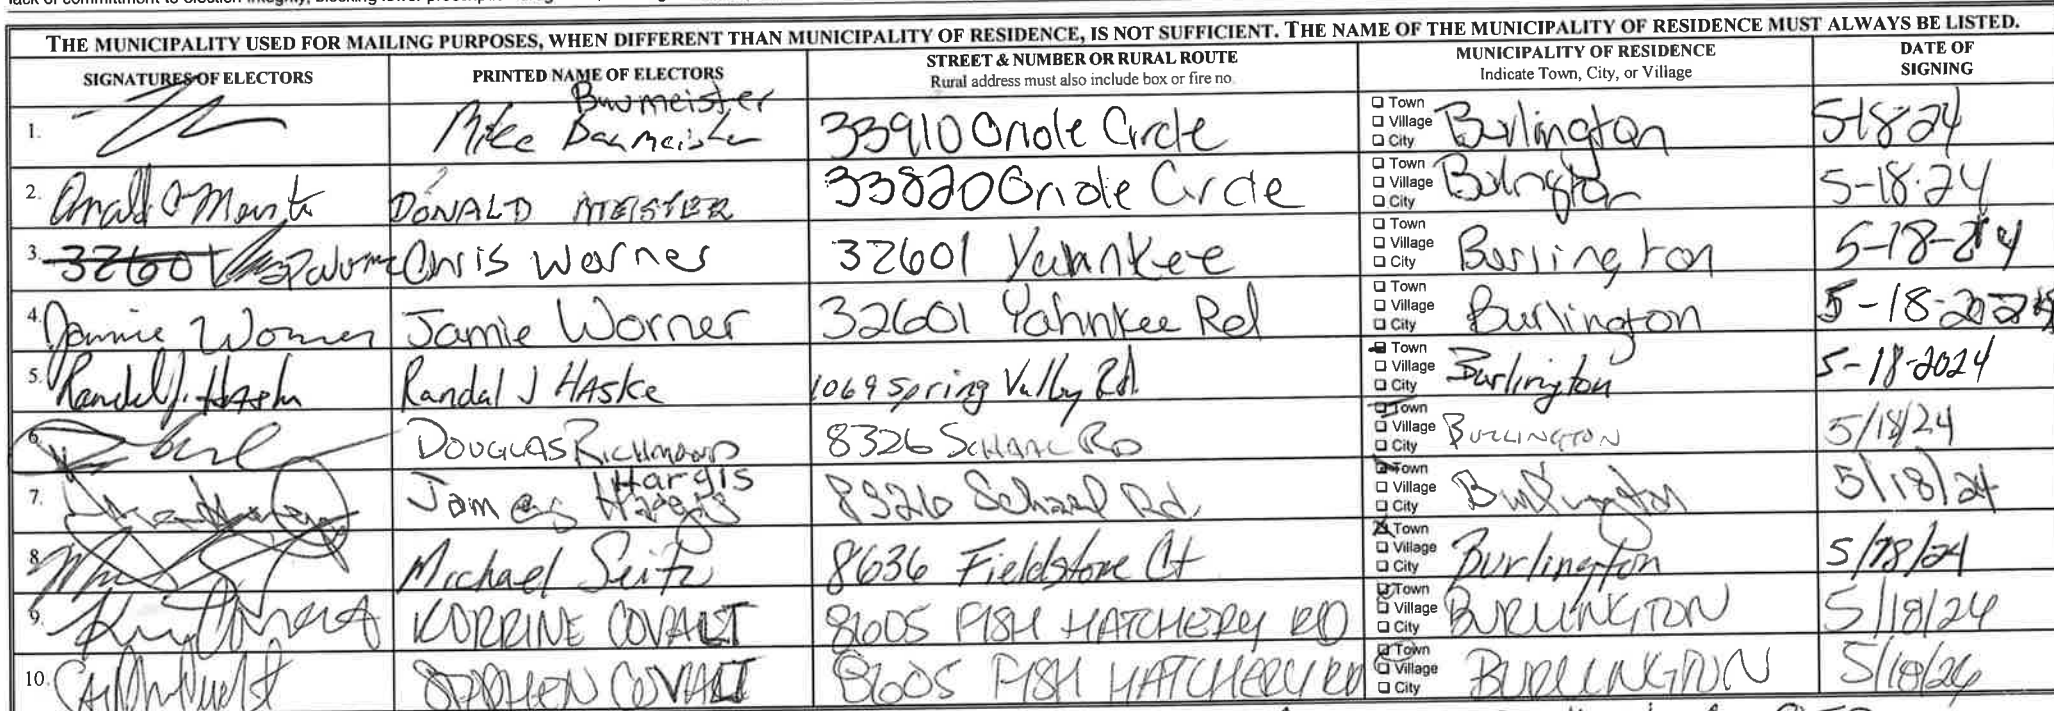 THE MUNICIPALITY USED FOR MAILING PURPOSES, WHEN DIFFERENT THAN MUNICIPALITY OF RESIDENCE, IS NOT SUFFICIENT. THE NAME OF THE MUNICIPALITY OF RESIDENCE MUST ALWAYS BE LISTED.
SIGNATURES OF ELECTORS PRINTED NAME OF ELECTORS STREET & NUMBER OR RURAL ROUTE MUNICIPALITY OF RESIDENCE DATE OF SIGNING
Rural address must also include box or fire no. Indicate Town, City, or Village
1. Mike Baumeister 33910 Oriole Circle Town Village City Burlington 5-18-24
2. DONALD MEISTER 33820 Oriole Circle Town Village City Burlington 5-18-24
3. 32601 Chris Worner 32601 Yahnkee Town Village City Burlington 5-18-24
4. Jamie Worner Jamie Worner 32601 Yahnkee Rd Town Village City Burlington 5-18-2024
5. Randal J. Haske Randal J HAske 1069 Spring Valley Rd. Town Village City Burlington 5-18-2024
6. DOUGLAS RICHMOND 8326 SCHAAL RD Town Village City BURLINGTON 5/18/24
7. James Hargis 8326 Schaal Rd. Town Village City Burlington 5/18/24
8. Michael Seitz 8636 Fieldstone Ct Town Village City Burlington 5/18/24
9. KORRINE COVALT 8605 FISH HATCHERY RD Town Village City BURLINGTON 5/18/24
10. STEPHEN COVALT 8605 FISH HATCHERY RD Town Village City BURLINGTON 5/18/24